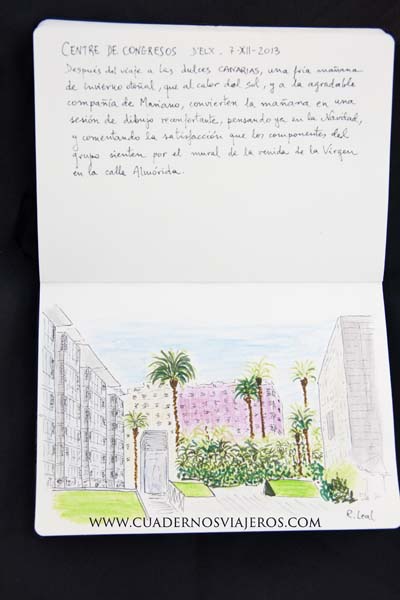 CENTRE DE CONGRESOS D'ELX. 7-XII-2013
Después del viaje a las dulces CANARIAS, una fría mañana
de invierno otoñal, que al calor del sol, y a la agradable
compañía de Mariano, convierten la mañana en una
sesión de dibujo reconfortante, pensando ya en la Navidad,
y comentando la satisfacción que los componentes del
grupo sienten por el mural de la venida de la Virgen
en la calle Almórida.
R. Leal
WWW.CUADERNOSVIAJEROS.COM